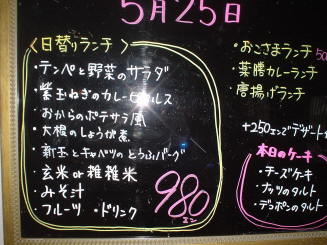 5月25日
〈日替りランチ〉
・テンペと野菜のサラダ
・紫玉ねぎのカレーピクルス
・おからのポテサラ風
・大根のしょうが煮
・新玉とキャベツのとうふバーグ
・玄米 or 雑穀米
・みそ汁
・フルーツ ・ドリンク
980エン
・おこさまランチ 50
・薬膳カレーランチ
・唐揚げランチ
+250エンデザート
本日のケーキ
・チーズケーキ
・ナッツのタルト
・デコポンのタルト